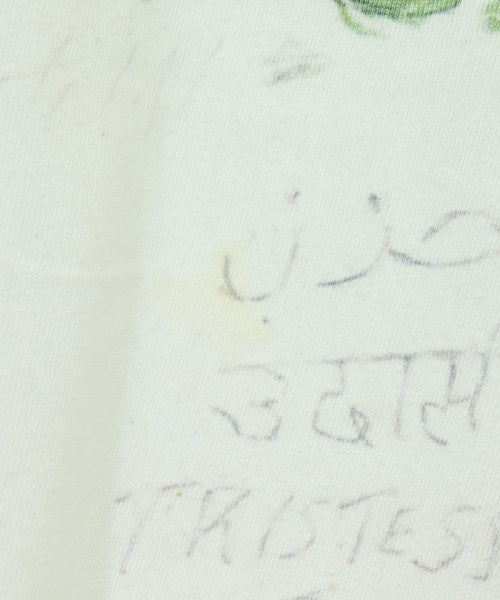 حزن
उदास
TRISTES